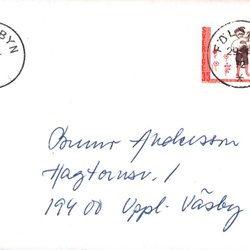 BYN
FÖLS
Bruno Andersson
Hagtornsv. 1
194 00 Uppl. Väsby